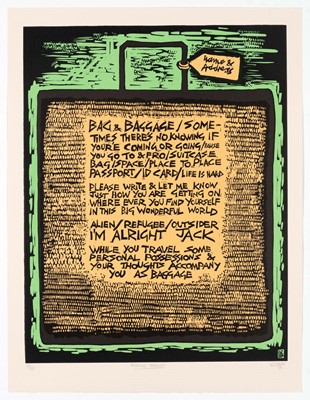 NAME &
ADDRESS
BAG & BAGGAGE/SOME-
TIMES THERES NO KNOWING IF
YOU'RE COMING OR GOING/
YOU GO TO & FRO/SUITCASE
BAG/SPACE/PLACE TO PLACE
PASSPORT/ID CARD/LIFE IS HARD
PLEASE WRITE & LET ME KNOW
JUST HOW YOU ARE GETTING ON
WHERE EVER YOU FIND YOURSELF
IN THIS BIG WONDERFUL WORLD
ALIEN/REFUGEE/OUTSIDER
I'M ALRIGHT JACK
WHILE YOU TRAVEL SOME
PERSONAL POSSESSIONS &
YOUR THOUGHTS ACCOMPANY
YOU AS BAGGAGE